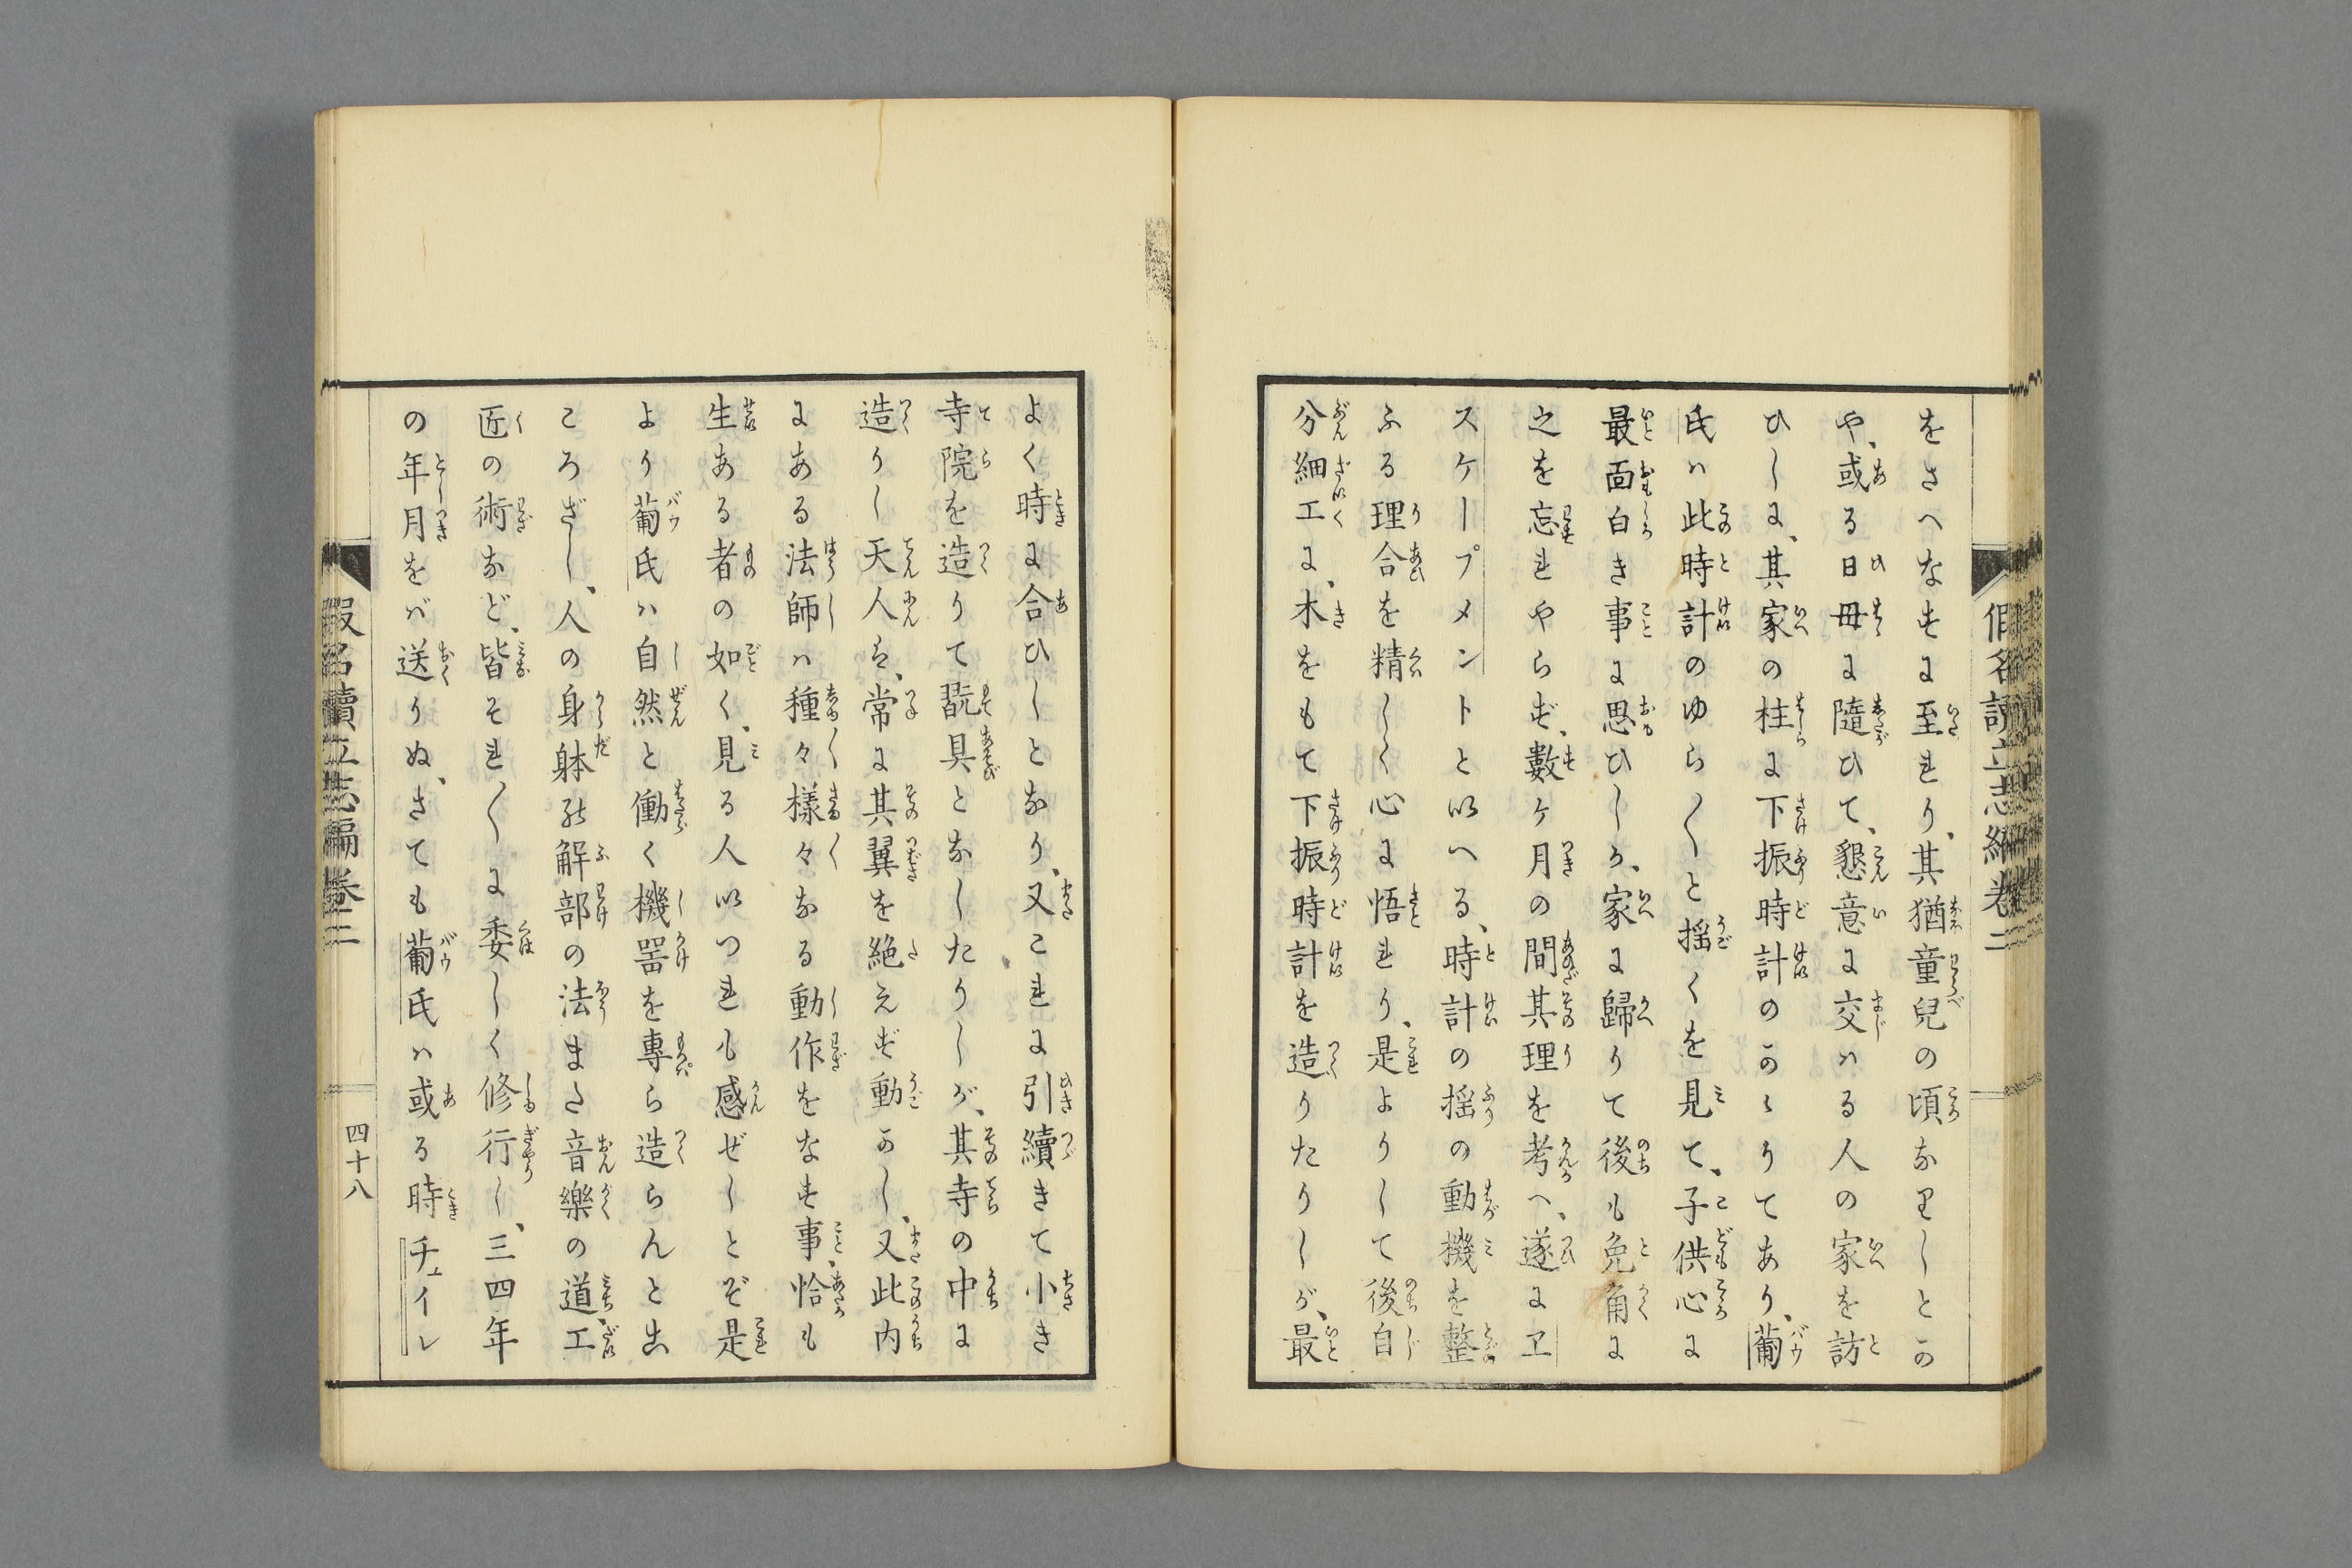 假名讀立志編卷二
をさへなすに至れり、其猶童兒の頃なりしとか
や、或る日母に隨ひて、懇意に交はる人の家を訪
ひしに、其家の柱に下振時計のかゝりてあり、葡
氏ハ此時計のゆら〱と搖くを見て、子供心に
最面白き事に思ひしか、家に歸りて後も免角に
之を忘れやらず、數ヶ月の間其理を考へ、遂にヱ
スケープメントといへる、時計の搖の動機を整
ふる理合を精しく心に悟れり、是よりして後自
分細工に、木をもて下振時計を造りたりしが、最
よく時に合ひしとなり、又これに引續きて小き
寺院を造りて翫具となしたりしが、其寺の中に
造りし天人は、常に其翼を絶えず動かし、又此内
にある法師ハ種々樣々なる動作をなす事、恰も
生ある者の如く、見る人いつれも感ぜしとぞ是
より葡氏ハ自然と働く機器を專ら造らんと志
ころざし、人の身躰の解部の法また音樂の道、工
匠の術など、皆それ〱に委しく修行し、三四年
の年月をバ送りぬ、さても葡氏ハ或る時チュイレ
假名讀立志編卷二
四十八